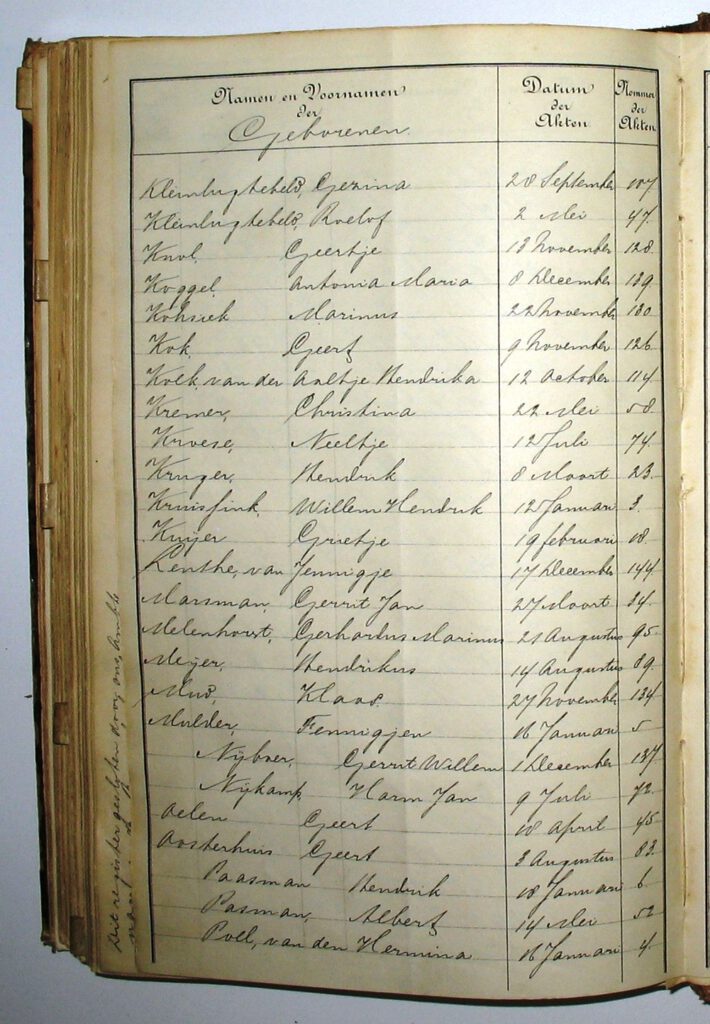 Namen en Voornamen der Geborenen.
Datum der Akten
Nommer der Akten
Kleinlugtebeld, Gezina 28 September 107
Kleinlugtebeld, Roelof 2 Mei 47.
Knol, Geertje 18 November 128.
Koggel, Antonia Maria 8 December 139.
Kohsiek Marinus 22 November 130
Kok, Geert 9 November 126
Kolk, van der Aaltje Hendrika 12 October 114
Kremer, Christina 22 Mei 58.
Kroese, Neeltje 12 Juli 74.
Kruger, Hendrik 8 Maart 23.
Kruisfink, Willem Hendrik 12 Januari 3.
Kuijer Grietje 19 februari 18.
Lenthe, van Jennigje 17 December 144.
Marsman, Gerrit Jan 27 Maart 34.
Melenhorst, Gerhardus Marinus 21 Augustus 95.
Meijer, Hendrikus 14 Augustus 89.
Mud, Klaas. 27 November 134
Mulder, Fennigjen 16 Januari 5
Nijboer, Gerrit Willem 1 December 137
Nijkamp, Harm Jan 9 Juli 72.
Oelen Geert 18 April 45
Oosterhuis Geert 3 Augustus 83.
Paasman Hendrik 18 Januari 6
Pasman, Albert 14 Mei 52
Poll, van den Hermina 16 Januari 4.
Dit register gesloten door ons,